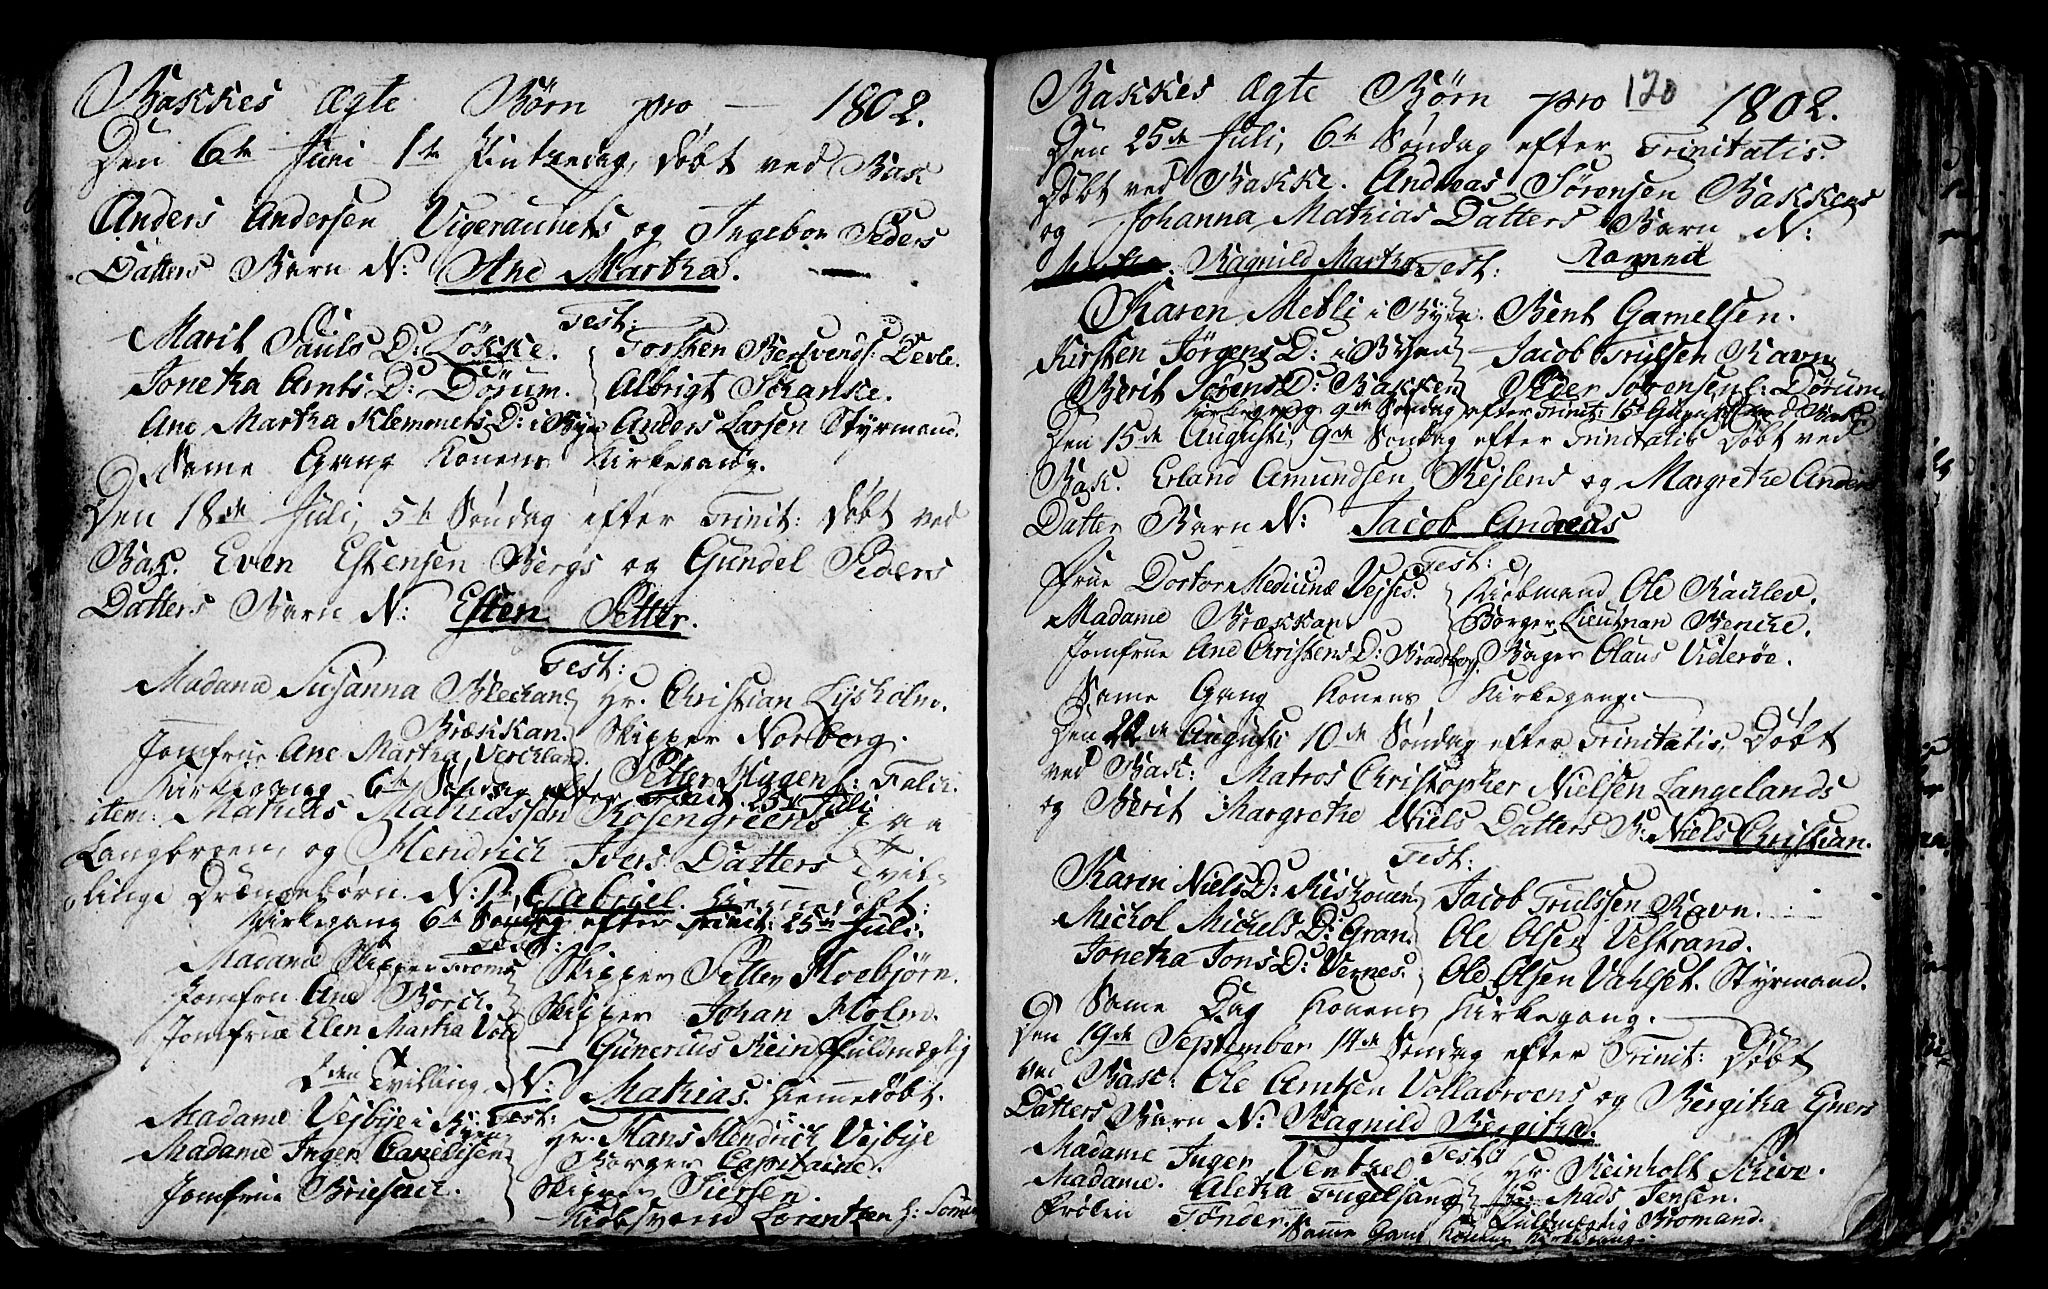 Bakkes Ægte Børn pro — 1802.
Den 6te Juni 1te Pintzedag, døbt ved Bak
Anders Andersen Vigeraunets og Ingebor Peders
Datters Barn N: Ane Martha.
Test:
Marit Pauls D: Løkke. Torsten Bersvends: Devle.
Jonetha Arnts D: Dørum. Albrigt Schanke.
Ane Martha Klemmets D: i Byn Anders Larsen Styrmand.
Same Gang Konens Kirkegang.
Den 18de Juli, 5te Søndag efter Trinit: døbt ved
Bak. Even Estensen Bergs og Gundel Peders
Datters Barn N: Esten Petter.
Test:
Madame Susanna Blechan Hr. Christian Lysholm.
Brækkan. Skipper Norberg.
Jomfrue Ane Martha Verchland. Petter Hugen
Kirkegang 6te Søndag efter Trinit. 25de Juli
item: Mathias Mathiassen Rosengreens paa
Langbroen, og Hendrich Ivers Datters Tvil-
linge Drængebørn. N: 1te, Gabriel. Hiemmedøbt:
Kirkegang 6te Søndag efter Trinit: 25de Juli.
Test:
Madame Skipper Skipper Petter Hoebjørn.
Jomfru Ane Borch. Skipper Johan Holm.
Jomfrue Elen Martha Vold Gunerius Rein Fuldmægtig
den Tvilling N: Mathias. Hiemmedøbt.
Test:
Madame Vejbye i Byen Hr. Hans Hendrich Vejbye
Madame Inger Danielsen Borger Capitaine.
Jomfrue Brieschch. Skipper Siersen.
Lorentzen
Bakkes Ægte Børn pro 120 1802.
Den 25de Juli, 6te Søndag efter Trinitatis.
Døbt ved Bakke. Andreas Sørensen Bakkens
og Johanna Mathias Datters Barn N:
Ragnild Martha Test:
Karen Mebli i Byen. Bent Gamelsen.
Kirsten Jørgens D: i Byen Jacob Trulsen Ravn
Berit Sørens D: Bakken Peder Sørensen Dorum
Kirkegang 9de Søndag efter Trinit: 15 Augusti ved Bak
Den 15de Augusti, 9de Søndag efter Trinitatis Døbt ved
Bak. Erland Amundsen Rejlens og Margrethe Anders
Datter Barn N: Jacob Andreas
Test:
Frue Doctor Medicinæ Vejses. Kiøbmand Ole Rachlev.
Madame Brækkan Borger Lieutnan Bencke.
Jomfrue Ane Christens D: Bradberg Bager Claus Viderøe.
Same Gang Konens Kirkegang.
Den 22de Augusti 10de Søndag efter Trinitatis, Døbt
ved Bak: Matros Christopher Nielsen Langelands
og Berit Margrethe Niels Datters B: Niels Christian.
Test:
Karen Niels D: Jacob Trulssen Ravn.
Michol Michels D: Gran. Ole Olsen Vestrand.
Jonetha Jons D: Vernes. Ole Olsen Vahlset. Styrmand.
Same Dag Konens Kirkegang.
Den 19de September 14de Søndag efter Trinit: Døbt
ved Bak: Ole Arntsen Vollabroens og Bergitha Ejners
Datters Barn N: Ragnild Bergitha.
Test:
Madame Inger Ventzel Hr. Reinholt Schive.
Madame. Aletha Fugelsang Hr: Mads Jensen.
Frølen Tønder. Fuldmægtig Bromand.
Samme Gang Konens Kirkegang.